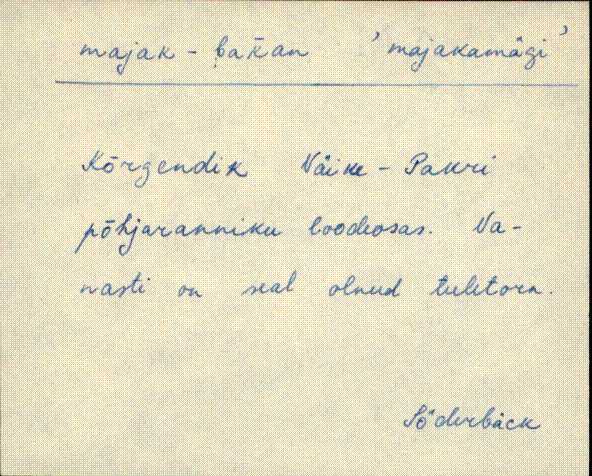 majak - bak̄an 'majakamägi'
Kõrgendik Väike-Pakri
põhjaranniku loodeosas. Va-
nasti on seal olnud tuletorn.
Söderbäck